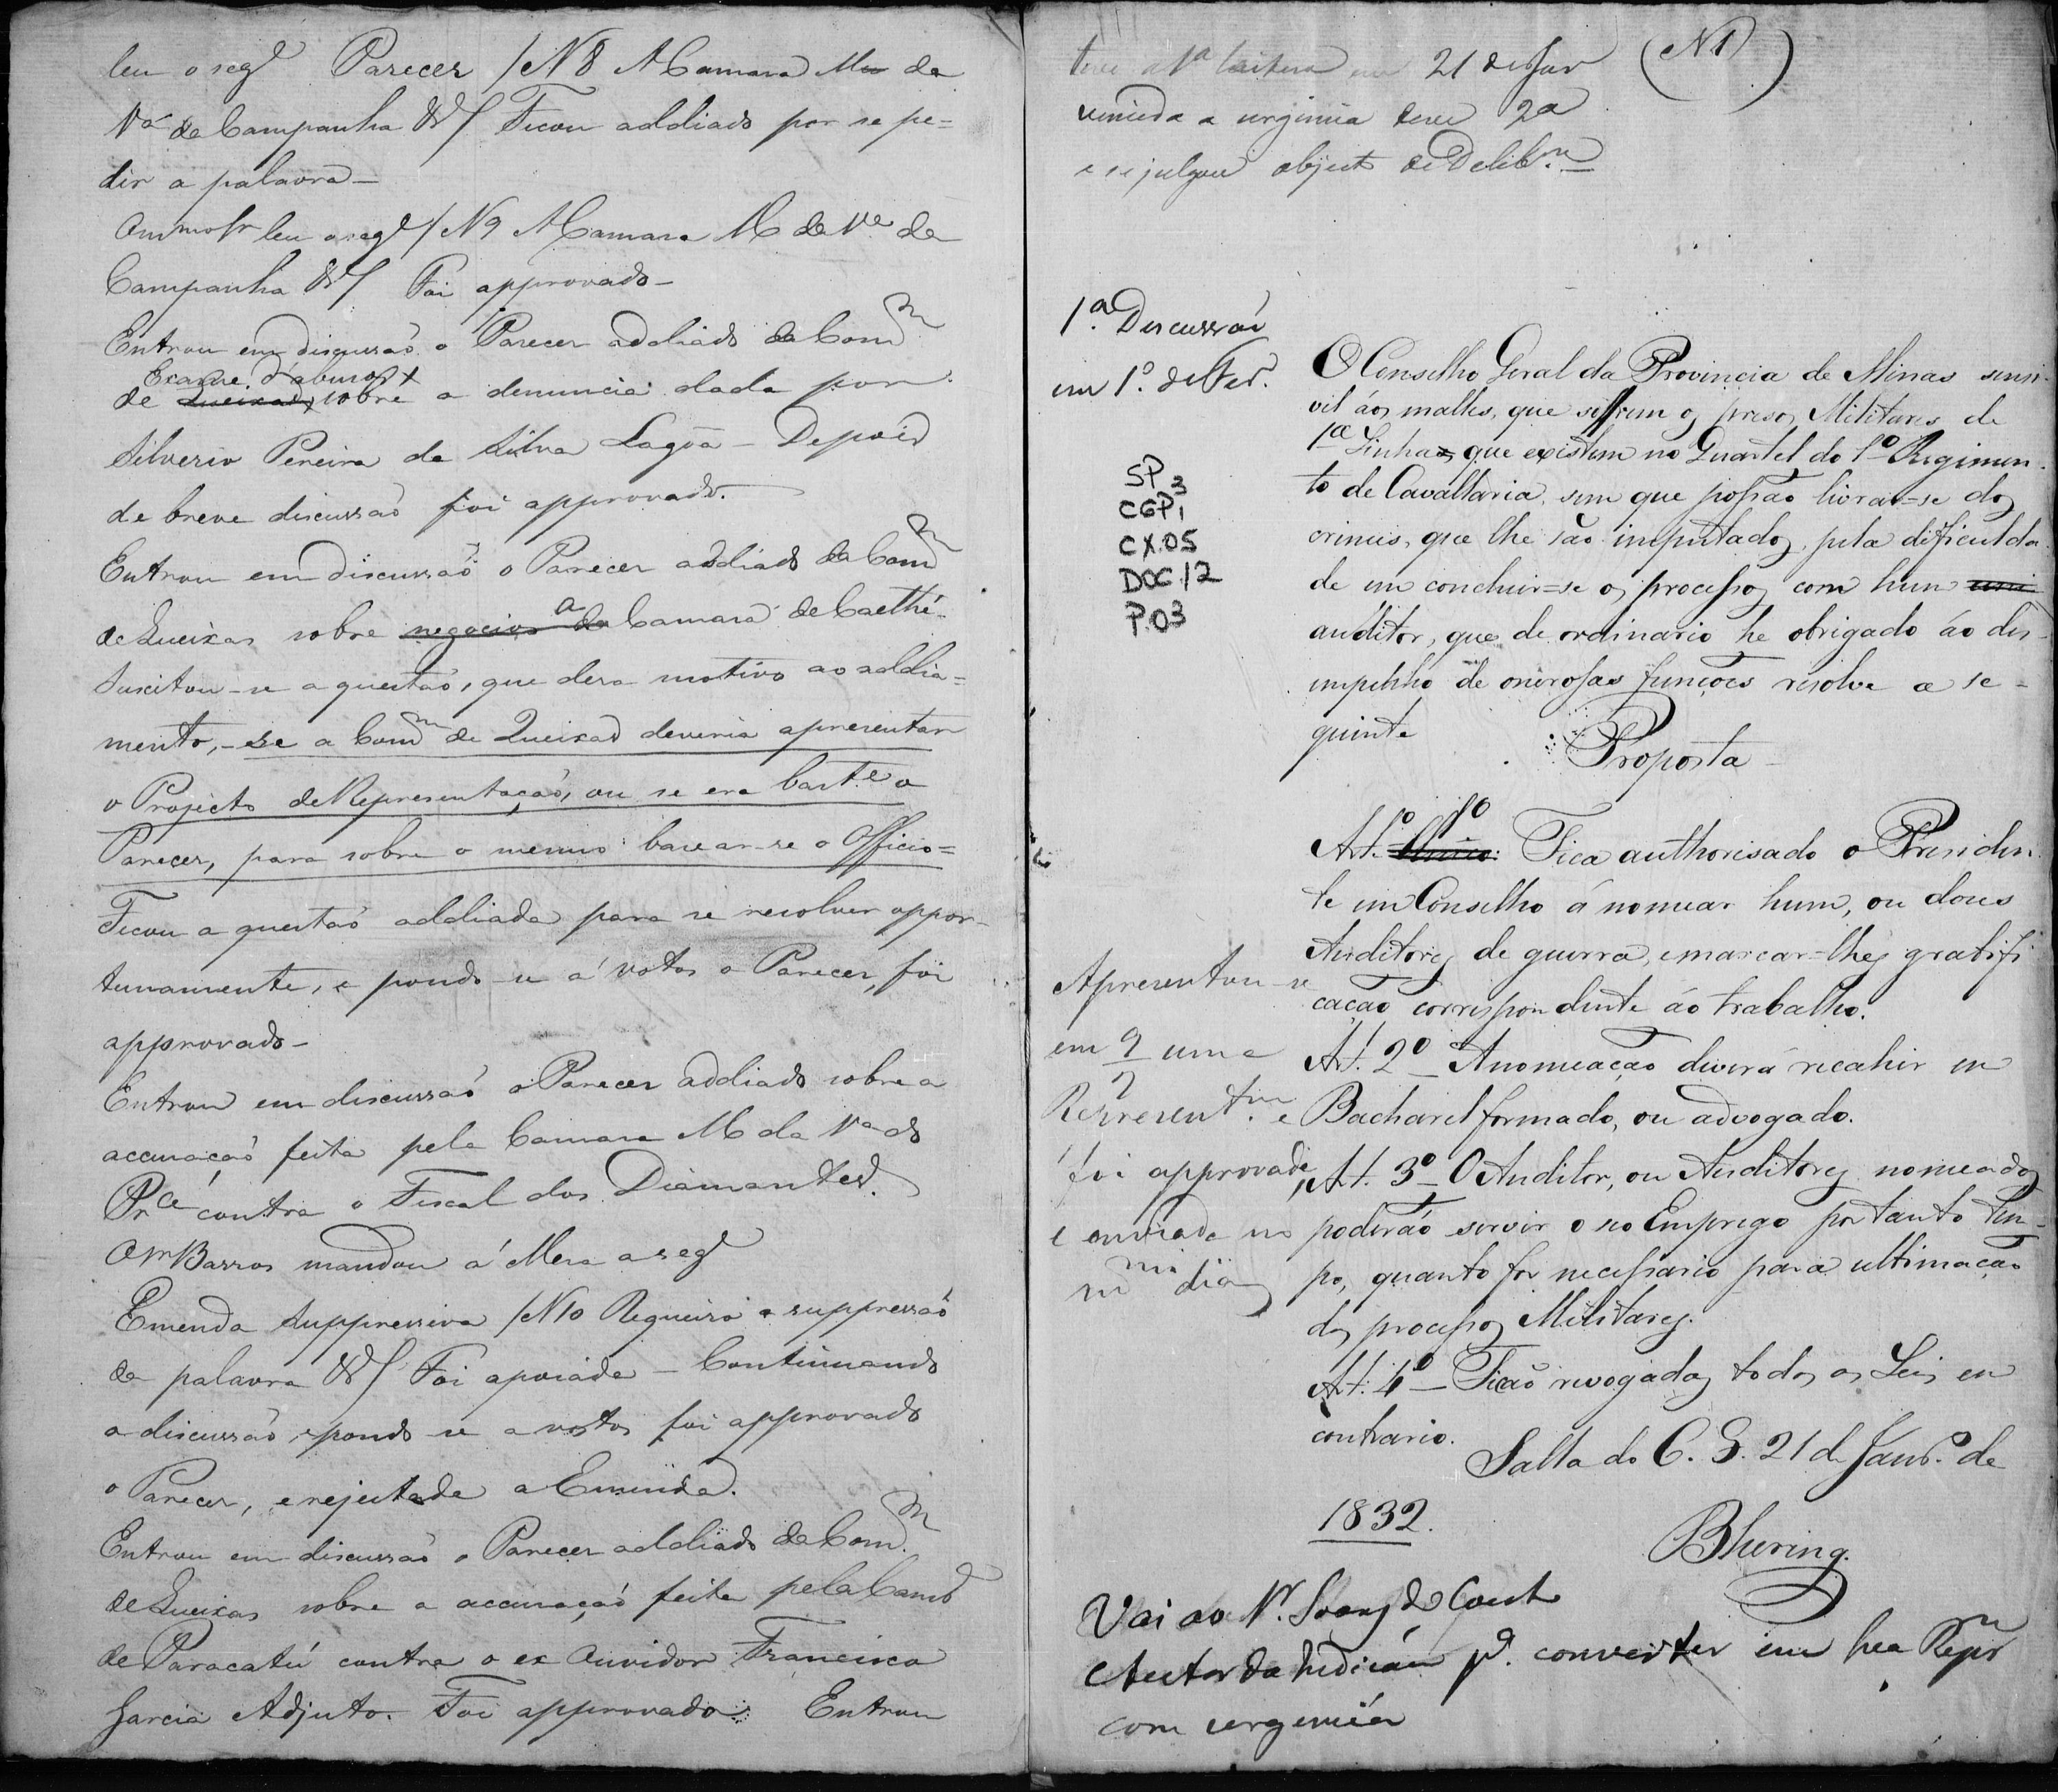 leu o seg.e Parecer /N 8 A Camara M da
V.a da Campanha &/ Ficou addiado por se pe=
dir a palavra_
O m.mo Sr leu o seg.e /N 9 A Camara M da V.a da
Campanha &/ Foi approvado_
Entrou em discussaõ o Parecer addiado da Com.m
Exame d'abusos
de Queixas sobre a denuncia dada por
Silverio Pereira da Silva Lagôa_ Depois
de breve discussaõ foi approvado.
Entrou em discussaõ o Parecer addiado da Com.m
de Queixas sobre negocios da a Camara de Caethé_
Suscitou-se a questaõ, que dera motivo ao addia=
mento,_se a Com.m de Queixas deveria apresentar
o Projecto de Representaçaõ, ou se era bast.e o
Parecer, para sobre o mesmo basear-se o Officio=
Ficou a questaõ addiada para se resolver oppor-
tunamente, e pondo-se á votos o Parecer, foi
approvado_
Entrou em discussaõ o Parecer addiado sobre a
accusaçaõ feita pela Camara M da V.a do
Pr.e contra o Fiscal dos Diamantes.
O Sr Barros mandou á Mesa a seg.e
Emenda suppressiva /N 10 Requeiro a suppressaõ
da palavra &/ Foi apoiada_ Continuando
a discussaõ, e pondo-se a votos foi approvado
o Parecer, e rejeitada a Emenda.
Entrou em discussaõ o Parecer addiado da Com.m
de Queixas sobre a accusaçaõ feita pela Cam.a
de Paracatú contra o ex Ouvidor Francisco
Garcia Adjuto. Foi approvado. Entrou
teve a 1a leitura em 21 de Jan (N 1)
vencida a urgencia teve 2a
e se julgou objecto de Delib.m
1.a Discussaõ
em 1.o de Fev.
SP 3
CGP 1
CX.05
DOC.12
P.03
O Conselho Geral da Provincia de Minas sensi-
vel áos malles, que soffrem os presos Militares de
1a Linha, que existem no Quartel do 1o Regimen-
to de Cavallaria, sem que possaõ livrar=se dos
crimes, que lhe saõ imputados, pela dificulda-
de em concluir=se os processos com hum
auditor, que de ordinario he obrigado áo des-
impenho de onerosas funçoes resolve a se-
guinte
Proposta_
Art.o Unico 1o Fica authorisado o Presiden-
te em Conselho á nomear hum, ou dous
Auditores de guerra, e marcar=lhes gratifi
cacaõ correspondente áo trabalho.
Art. 2o_ A nomeaçaõ deverá recahir em
Bacharel formado, ou advogado.
Art. 3o_ O Auditor, ou Auditores nomeados
poderáõ servir o seo Emprego por tanto tem-
po, quanto for necessario para ultimaçaõ
dos processos Militares.
Art. 4o_ Ficaõ revogadas todas as Leis em
contrario.
Apresentou-se
em 9 uma
Represent.m e
foi approvada,
e enviada no
m.mo dia
Salla do C. G. 21 de Jan.o de
1832.
Bhering.
Vai ao Sr.
Autor da Indicaçaõ p.a converter em hua Repr.m
com urgencia